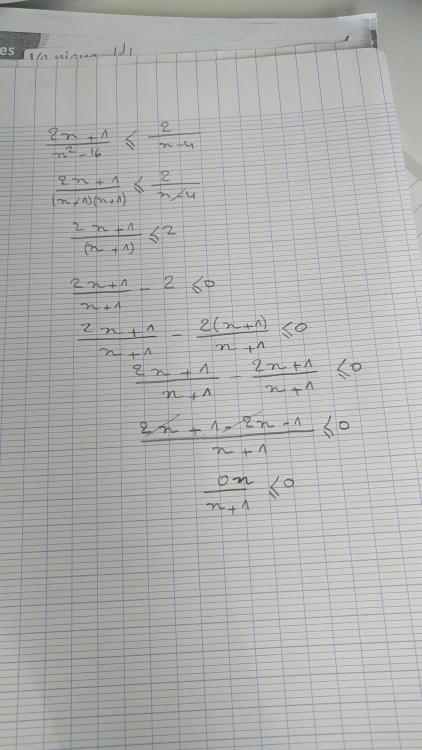 es
(2x + 1)/(x² - 16) ⩽ 2/(x - 4)
(2x + 1)/((x-1)(x+1)) ⩽ 2/(x-4)
(2x + 1)/(x + 1) ⩽ 2
(2x + 1)/(x + 1) - 2 ⩽ 0
(2x + 1)/(x + 1) - 2(x+1)/(x + 1) ⩽ 0
(2x + 1)/(x + 1) - (2x + 1)/(x + 1) ⩽ 0
(2x + 1 - 2x - 1)/(x + 1) ⩽ 0
0x/(x + 1) ⩽ 0